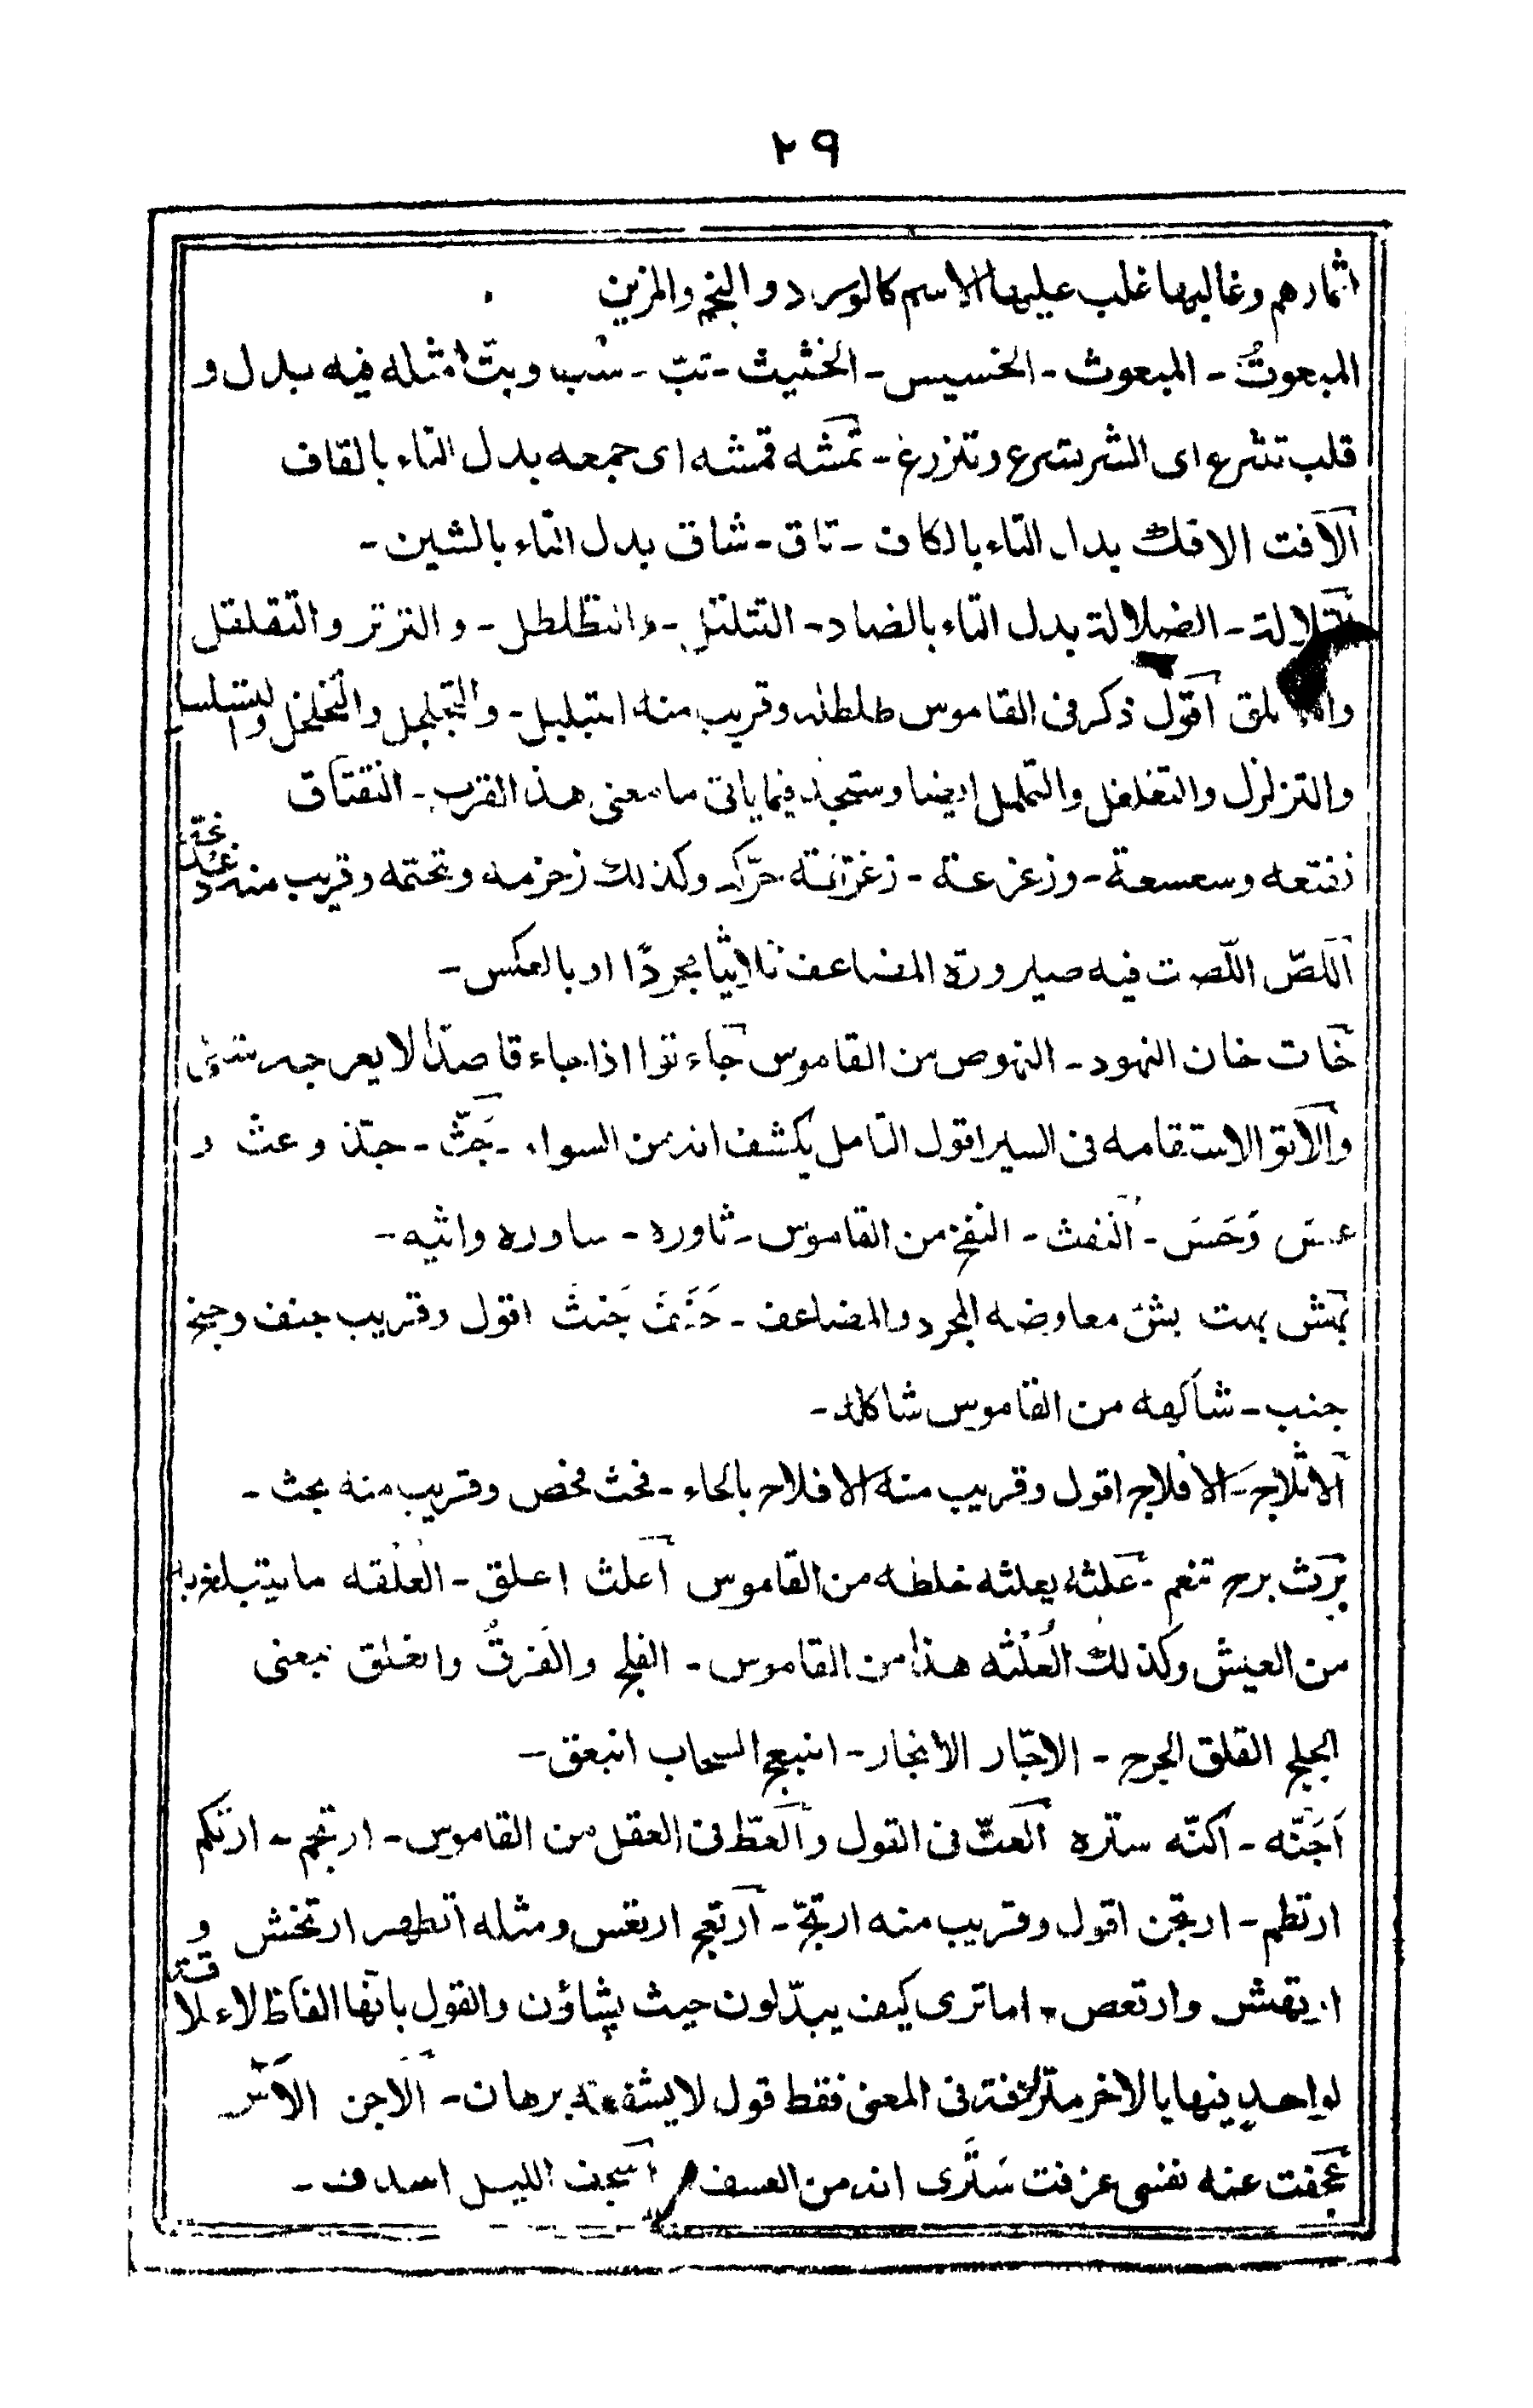 ٢٩
اثمارهم وغالبها غلب عليها الاسم كالورد والنجم والمزين
المبعوتُ - المبعوث - الخسيس - الخثيث - تبّ - شب وبتّ امثله فيه بدل و
قلب تترع اى الشر تشرع وتنزرغ - تمشه قمشه اى جمعه بدل التاء بالقاف
الآفت الافك بدل التاء بالكاف - تاق - شاق بدل التاء بالشين -
التلالة - الضلالة بدل التاء بالضاد - التتلتل - والتظلطل - والترتر والتقلقل
اقول ذكر فى القاموس طلطله وقريب منه التبلبل - والتجلجل والتخلخل والتسلسل
والتزلزل والتغلغل والتململ ايضا وستجد فيما ياتى ما معنى هذ القرب - التقتاق
تعتعه وسعسعة - وزعزعة - زغزغة حرّكه وكذلك زحزمه وتحتمه وقريب منه
اللصّ اللّصت فيه صيرورة المضاعف ثلاثيا مجردًا او بالعكس -
خات خان النهود - النهوص من القاموس جاء توا اذا جاء قاصدا لا يعرجه شئ
والاتو الاستقامه فى السير اقول التامل يكشف انه من السواء - جَثّ - جذ وعث و
عسّ وَحَسَ - النفث - النفخ من القاموس - ثاوره - ساوره واثبه -
بهت بشئ معاوضه المجرد والمضاعف - جَنثَ اقول وقريب جنف وجنح
جنب - شاكهه من القاموس شاكله -
الاثلاج - الافلاج اقول وقريب منه الافلاح بالحاء - فحث فحص وقريب منه بحث -
برث برح تنعم - علثه يعلثه خلطه من القاموس اعلث اعلق - العُلقه ما يتبلغ به
من العيش وكذلك العُلْثه هذا من القاموس - الفلج والفَرقُ وانغلق بمعنى
الجلج القلق الجرح - الاجّار الانجار - انبعج السحاب انبعق -
اَجَنّه - اكنّه ستره العتّ فى القول والعظ فى العقل من القاموس - ارتجم - ارتكم
ارتطم - ارتجن اقول وقريب منه ارتجّ - ارتعج ارتعس ومثله ارتخش و
ارتهش وارتعص - اما ترى كيف يبدّلون حيث يشاؤن والقول بانّها الفاظ لا علاقة
لواحد منها بالاخر مترادفة فى المعنى فقط قول لا يشفعه برهان - الآجن الآسن
عجفت عنه نفسى عزفت ستَرى انه من العسف اسجف الليل اسدف -